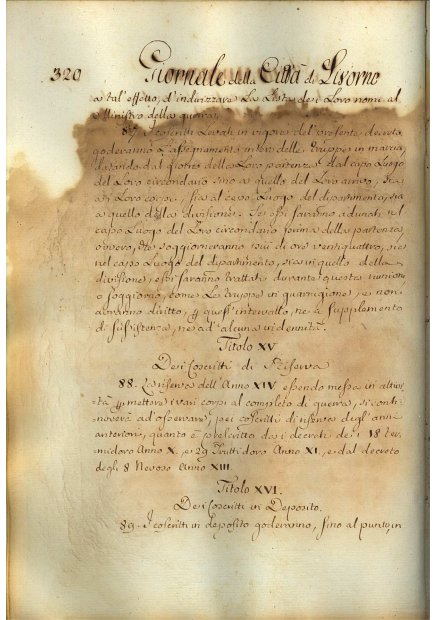 320 Giornale della Città di Livorno
a tal' effetto, d'indirizzare La Lista dei Loro nomi al
Ministro della guerra,
87. I coscritti Levati in vigore del presente decreto
goderanno L'assegnamento intero delle Truppe in marcia,
datando dal giorno della Loro partenza dal capo Luogo
del Loro circondario sino a quello del Loro arrivo, sia
ai Loro corpi, sia al capo Luogo del dipartimento, sia
a quello della divisione. Se essi saranno adunati nel
capo Luogo del Loro circondario prima della partenza
ovvero, se soggiorneranno più di ore ventiquattro, sia
nel capo Luogo del dipartimento, sia in quello della
divisione, essi saranno trattati durante questa riunione
o soggiorno, come Le truppe in guarnigione, e non
avranno diritto, quest' intervallo, ne a supplemento
di sussistenza, ne ad' alcuna indennità.
Titolo XV
Dei Coscritti di Riserva
88. La riserva dell' Anno XIV essendo messa in attivi-
tà mettere i vari corpi al completo di guerra, si conti-
noverà ad' osservare, pei coscritti di riserva degl' anni
anteriori, quanto è prescritto dai decreti dei 18 Ter-
midoro Anno X. e 29 Fruttidoro Anno XI, e dal decreto
degli 8 Nevoso Anno XIII.
Titolo XVI.
Dei Coscritti in Deposito.
89. I coscritti in deposito goderanno, fino al punto, in